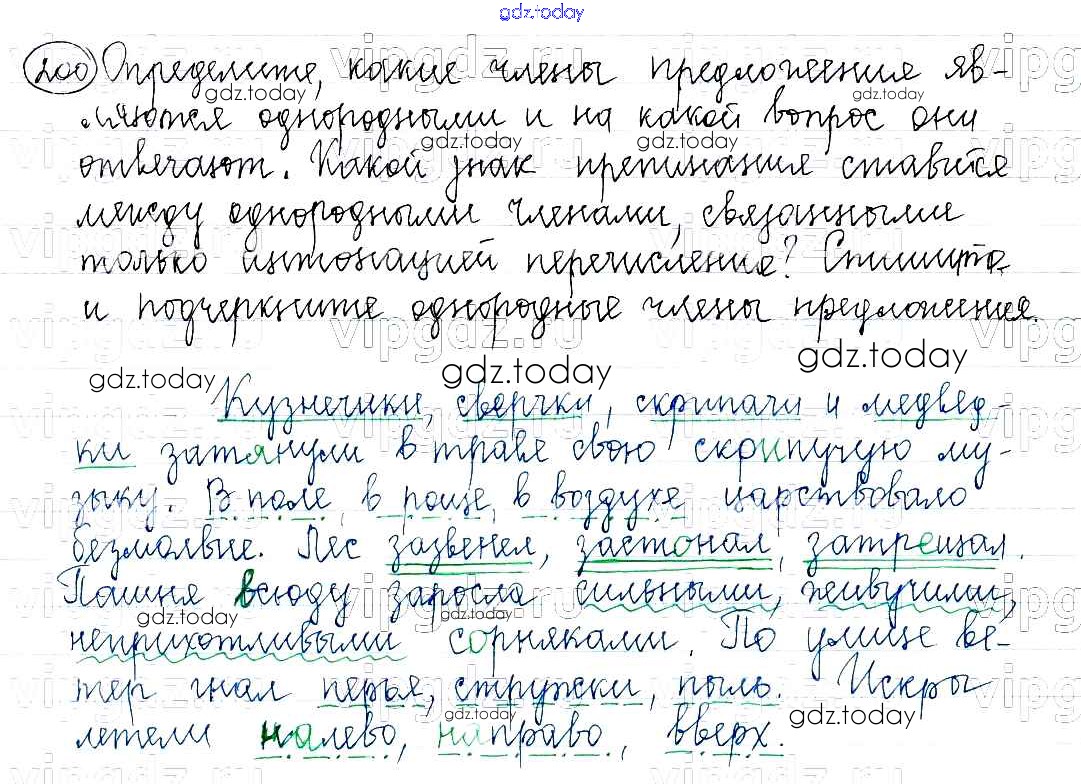 gdz.today
200 Определите, какие члены предложения яв-
ляются однородными и на какой вопрос они
отвечают. Какой знак препинания ставится
между однородными членами, связанными
только интонацией перечисления? Спишите
и подчеркните однородные члены предложения.
Кузнечики, сверчки, скрипачи и медвед-
ки затянули в траве свою скрипучую му-
зыку. В поле, в роще, в воздухе царствовало
безмолвие. Лес зазвенел, застонал, затрещал.
Пашня всюду заросла сильными, живучими,
неприхотливыми сорняками. По улице ве-
тер гнал перья, стружки, пыль. Искры
летели налево, направо, вверх.